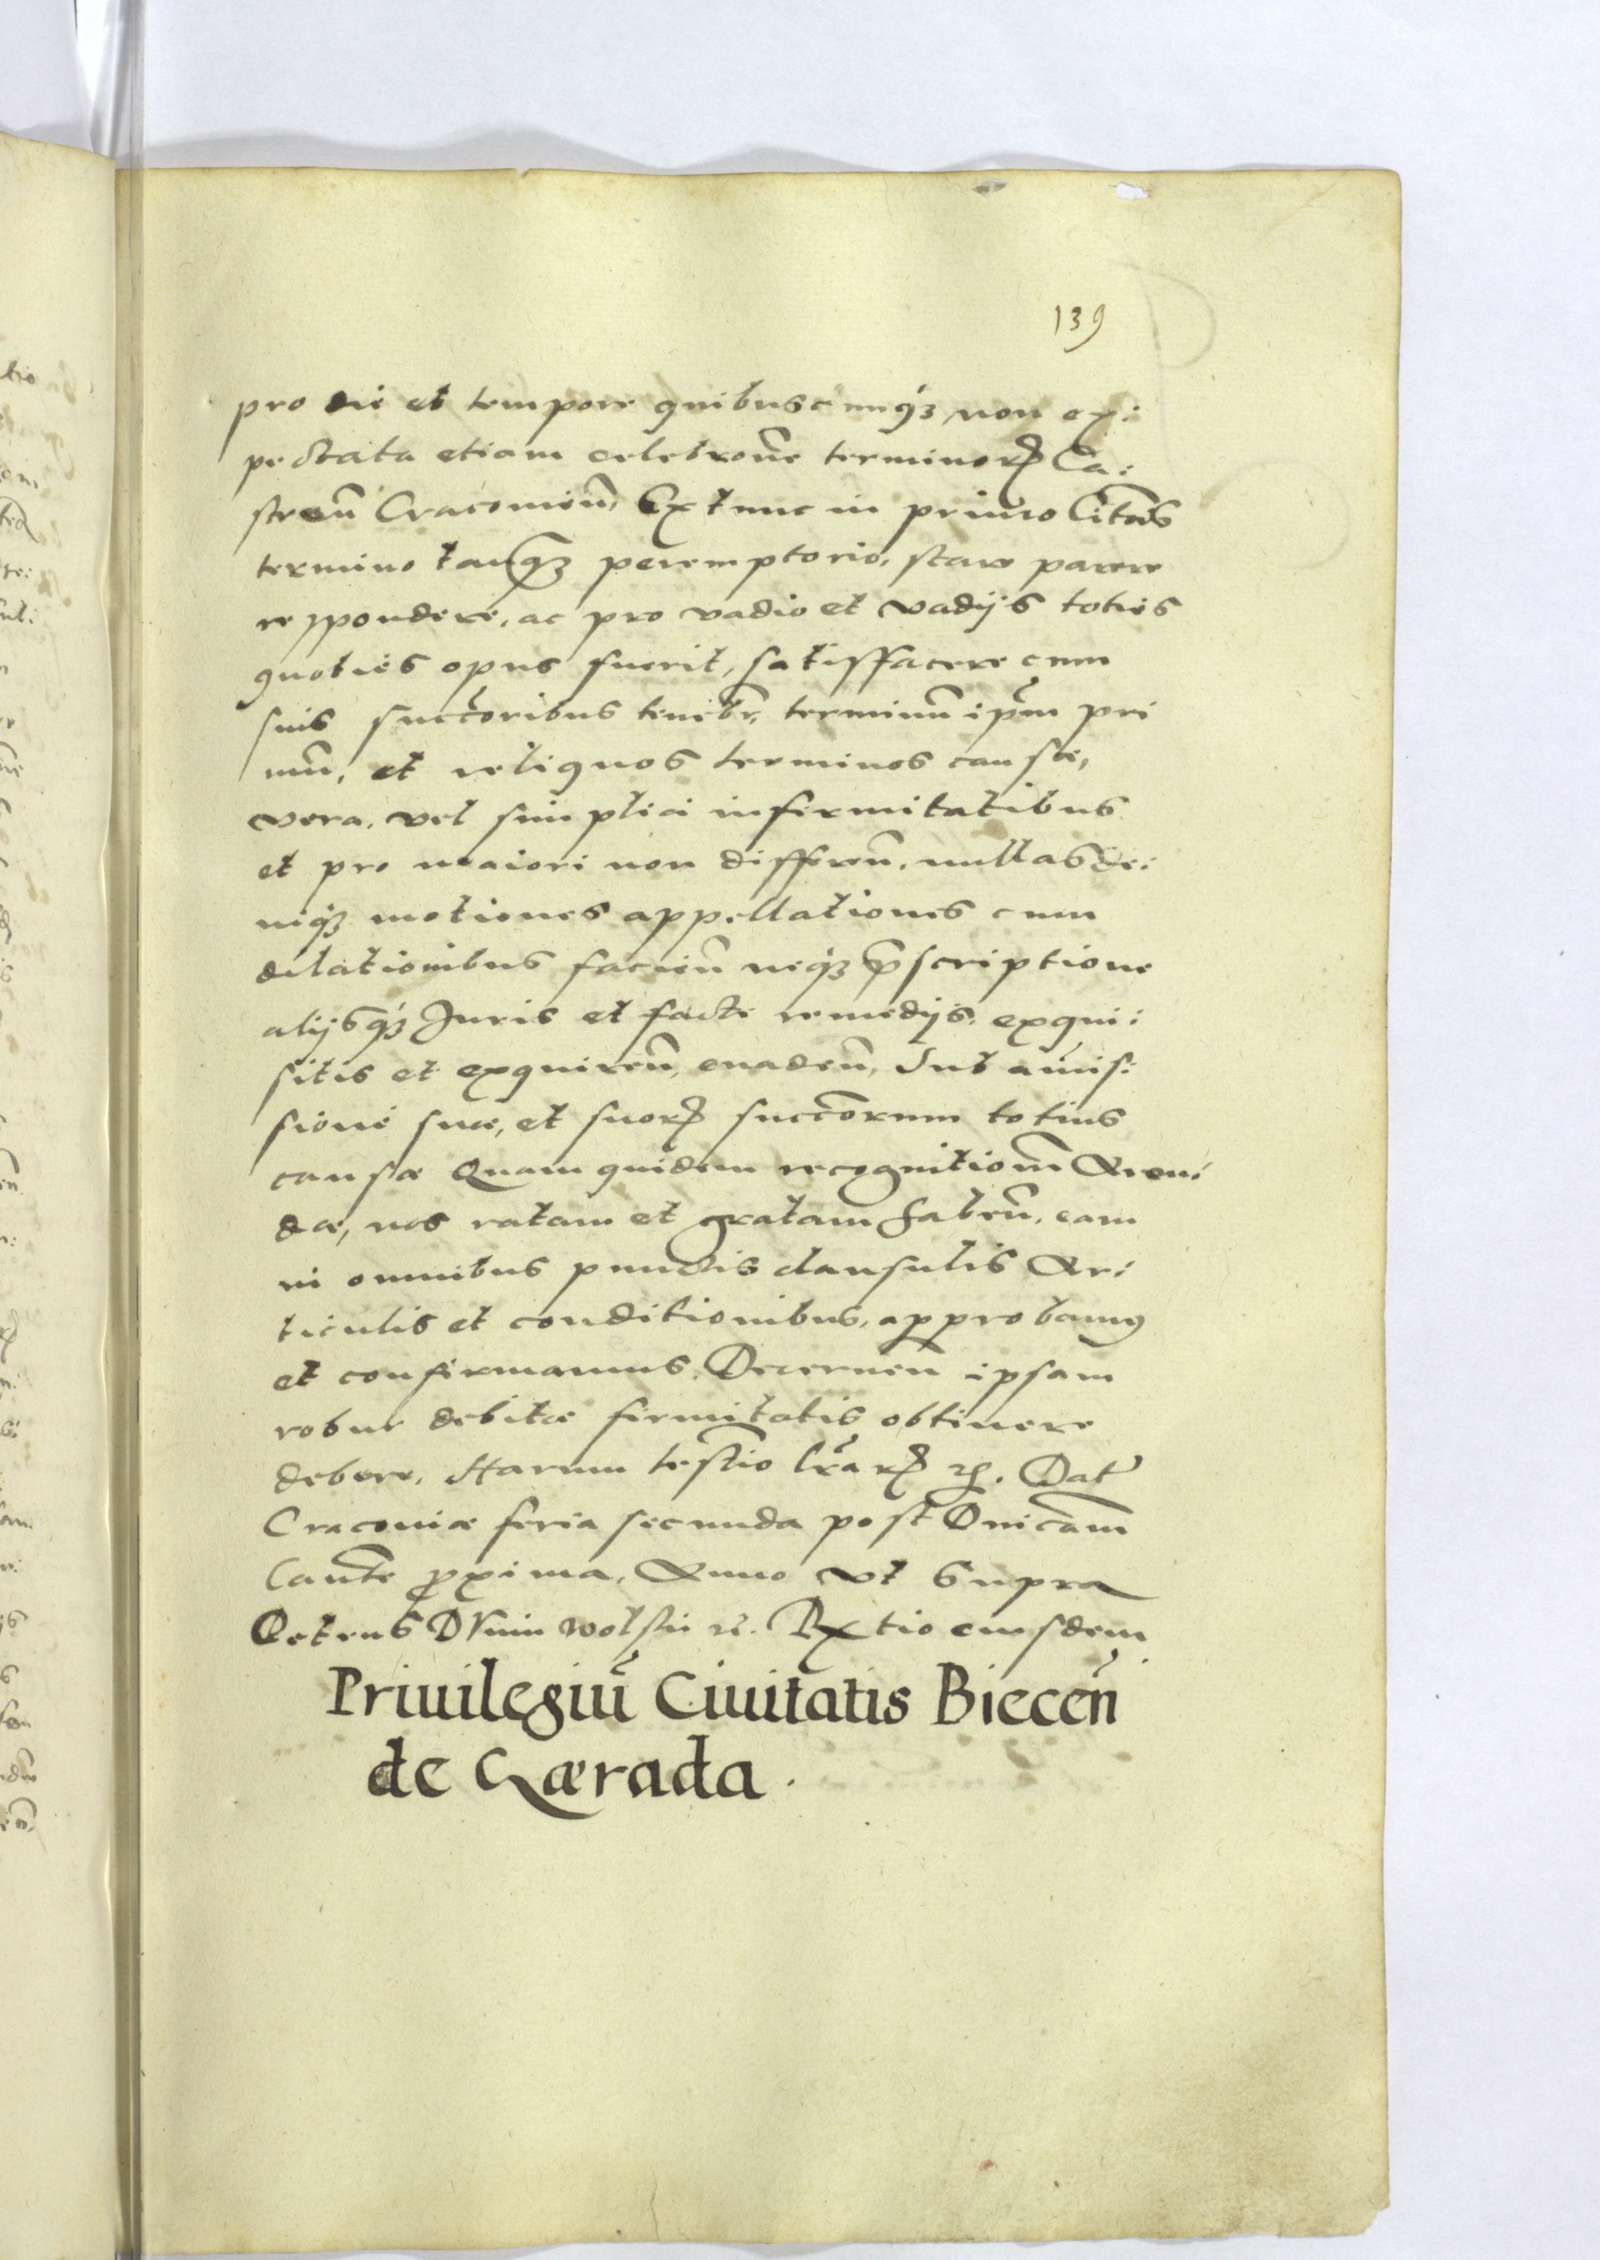 139
pro die et tempore quibuscunqꝫ non ex:
pectata etiam celebrone terminorꝝ Ca:
streñ Cracouieñ, Ex tunc in primo Citãis
termino tanqꝫ peremptorio, stare parere
respondere, ac pro vadio et vadijs toties
quoties opus fuerit, satisffacere cum
suis succoribus tenebr, terminũ ipm pri
mũ, et reliquos terminos causæ,
vera, vel simplici infirmitatibus
et pro maiori non differeñ, nullas de:
niqꝫ motiones appellationes cum
dilationibus facieñ neqꝫ pscriptione
alijsqꝫ Juris et facti remedijs, exqui:
sitis et exquireñ, euadeñ, Sub amis:
sione suæ, et suorꝝ succorum totius
causæ Quam quidem recognitiom Aren:
dæ, nos ratam et gratam habeñ, eam
in omnibus punctis clausulis Ar:
ticulis et conditionibus, approbamꝰ
et confirmamus, Decerneñ ipsam
robur debitæ firmitatis obtinere
debere, Harum testio lrarꝝ ꝛc. Dat
Cracouiæ feria secunda post Dnicam
Cante pxima, Anno vt supra
Priuilegiũ Ciuitatis Biecen̄
de Qærada.